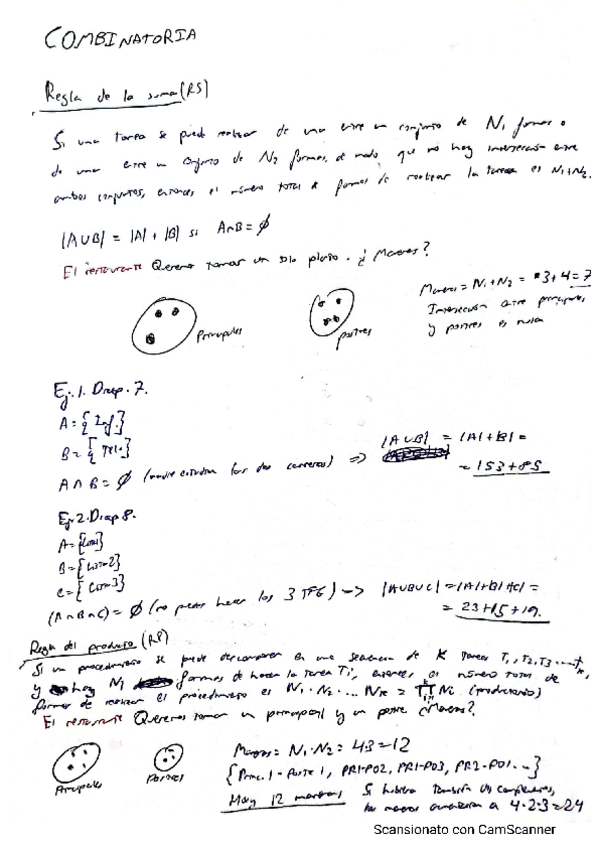 COMBINATORIA
Regla de la suma (RS)
Si una tarea se puede realizar de una entre un conjunto de N1 formas o
de una entre un conjunto de N2 formas, de modo que no hay intersección entre
ambos conjuntos, entonces el número total de formas de realizar la tarea es N1+N2.
|A∪B| = |A| + |B| si A∩B = ∅
El restaurante Queremos tomar un solo plato. ¿Maneras?
Maneras = N1+N2 = 3+4=7
Intersección entre principales
y postres es nula
Principales
postres
Ej. 1. Diap. 7.
A = {Inf.}
B = {Tel.}
A∩B = ∅ (nadie estudia las dos carreras) => |A∪B| = |A|+|B| =
= 153+85
Ej 2. Diap 8.
A = {List1}
B = {List2}
C = {List3}
(A∩B∩C) = ∅ (no puedes hacer los 3 TFG) -> |A∪B∪C| = |A|+|B|+|C| =
= 23+15+19.
Regla del producto (RP)
Si un procedimiento se puede descomponer en una secuencia de K tareas T1, T2, T3 ... Tk,
y hay Ni formas de hacer la tarea Ti, entonces el número total de
formas de realizar el procedimiento es N1·N2·...Nk = ∏ Ni (productorio)
El restaurante Queremos tomar un principal y un postre ¿Maneras?
Maneras = N1·N2 = 4·3 = 12
{Princ.1-Postre1, PR1-PO2, PR1-PO3, PR2-PO1...}
Hay 12 maneras
Si hubiera también dos
las maneras a 4·2·3=24
Principales
Postres
Scansionato con CamScanner